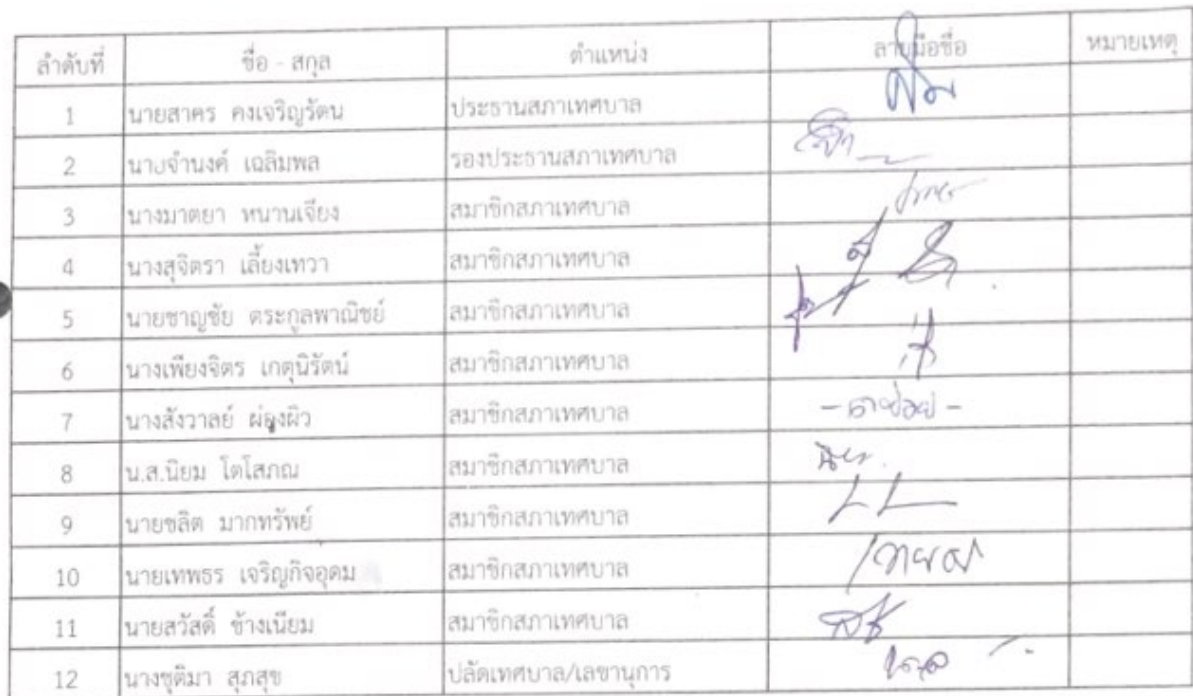 ลำดับที่ ชื่อ - สกุล ตำแหน่ง ลายมือชื่อ หมายเหตุ
1 นายสาคร คงเจริญรัตน ประธานสภาเทศบาล
2 นายจำนงค์ เฉลิมพล รองประธานสภาเทศบาล
3 นางมาตยา หนานเจียง สมาชิกสภาเทศบาล
4 นางสุจิตรา เลี้ยงเทวา สมาชิกสภาเทศบาล
5 นายชาญชัย ตระกูลพาณิชย์ สมาชิกสภาเทศบาล
6 นางเพียงจิตร เกตุนิรัตน์ สมาชิกสภาเทศบาล
7 นางสังวาลย์ ผ่องผิว สมาชิกสภาเทศบาล - ลาป่วย -
8 น.ส.นิยม โตโสภณ สมาชิกสภาเทศบาล
9 นายชลิต มากทรัพย์ สมาชิกสภาเทศบาล
10 นายเทพธร เจริญกิจอุดม สมาชิกสภาเทศบาล
11 นายสวัสดิ์ ช้างเนียม สมาชิกสภาเทศบาล
12 นางชุติมา สุภสุข ปลัดเทศบาล/เลขานุการ